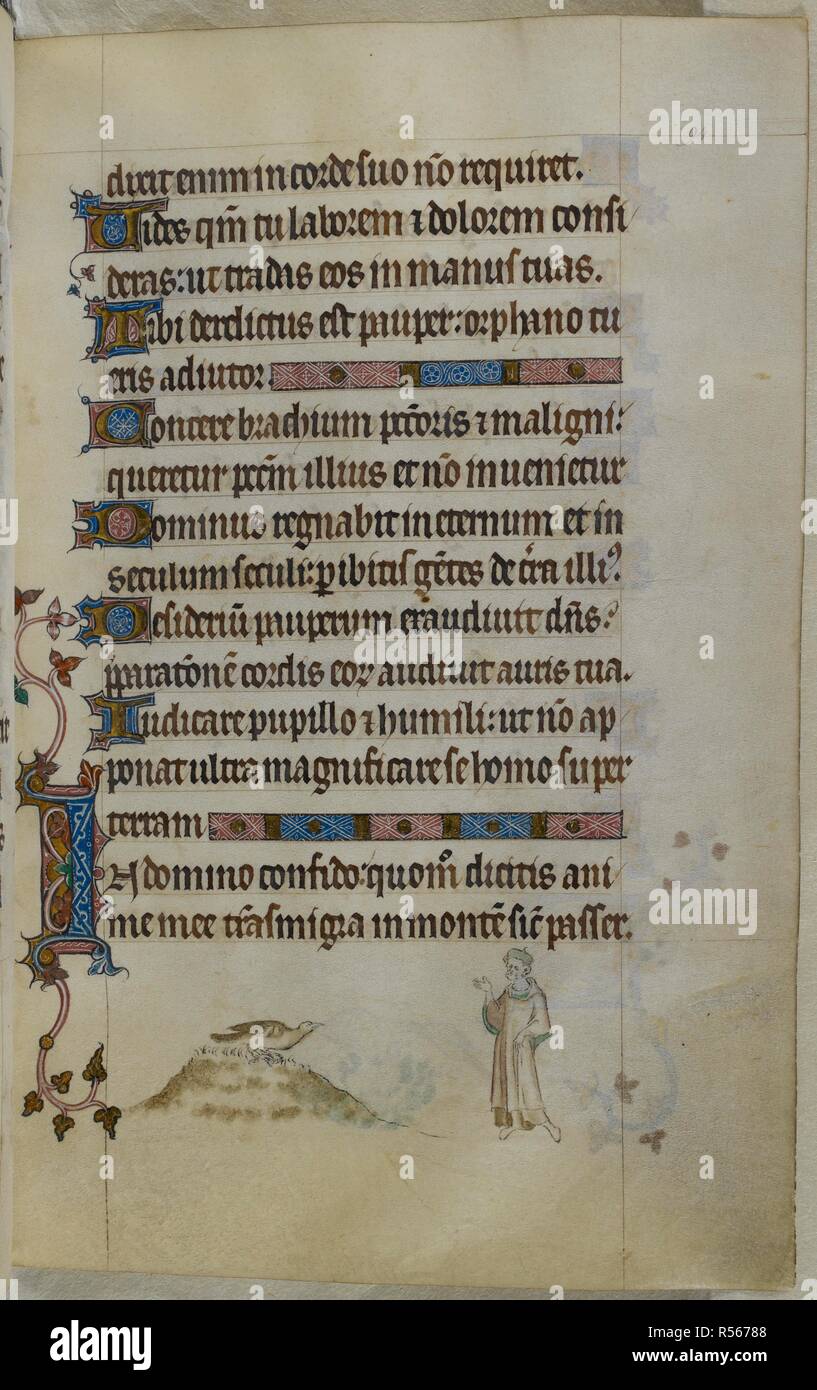 dixit enim in corde suo nõ requiret.
Uides qm̃ tu laborem ⁊ dolorem consi
deras: ut tradas eos in manus tuas.
Tibi derelictus est pauper: orphano tu
eris adiutor.
Contere brachium pctõris ⁊ maligni:
queretur pctm̃ illius et nõ inuenietur
Dominus regnabit in eternum et in
seculum seculi: ꝑibitis gẽtes de tr̃a illiꝰ.
Desideriũ pauperum exaudiuit dñs:
p̃paratõnẽ cordis eoꝝ audiuit auris tua.
Iudicare pupillo ⁊ humili: ut nõ ap
ponat ultra magnificare se homo super
terram
IN domino confido: quom̃ dicitis ani
me mee trãsmigra in montẽ sic̃ passer.
alamy
Image ID: R56788
www.alamy.com